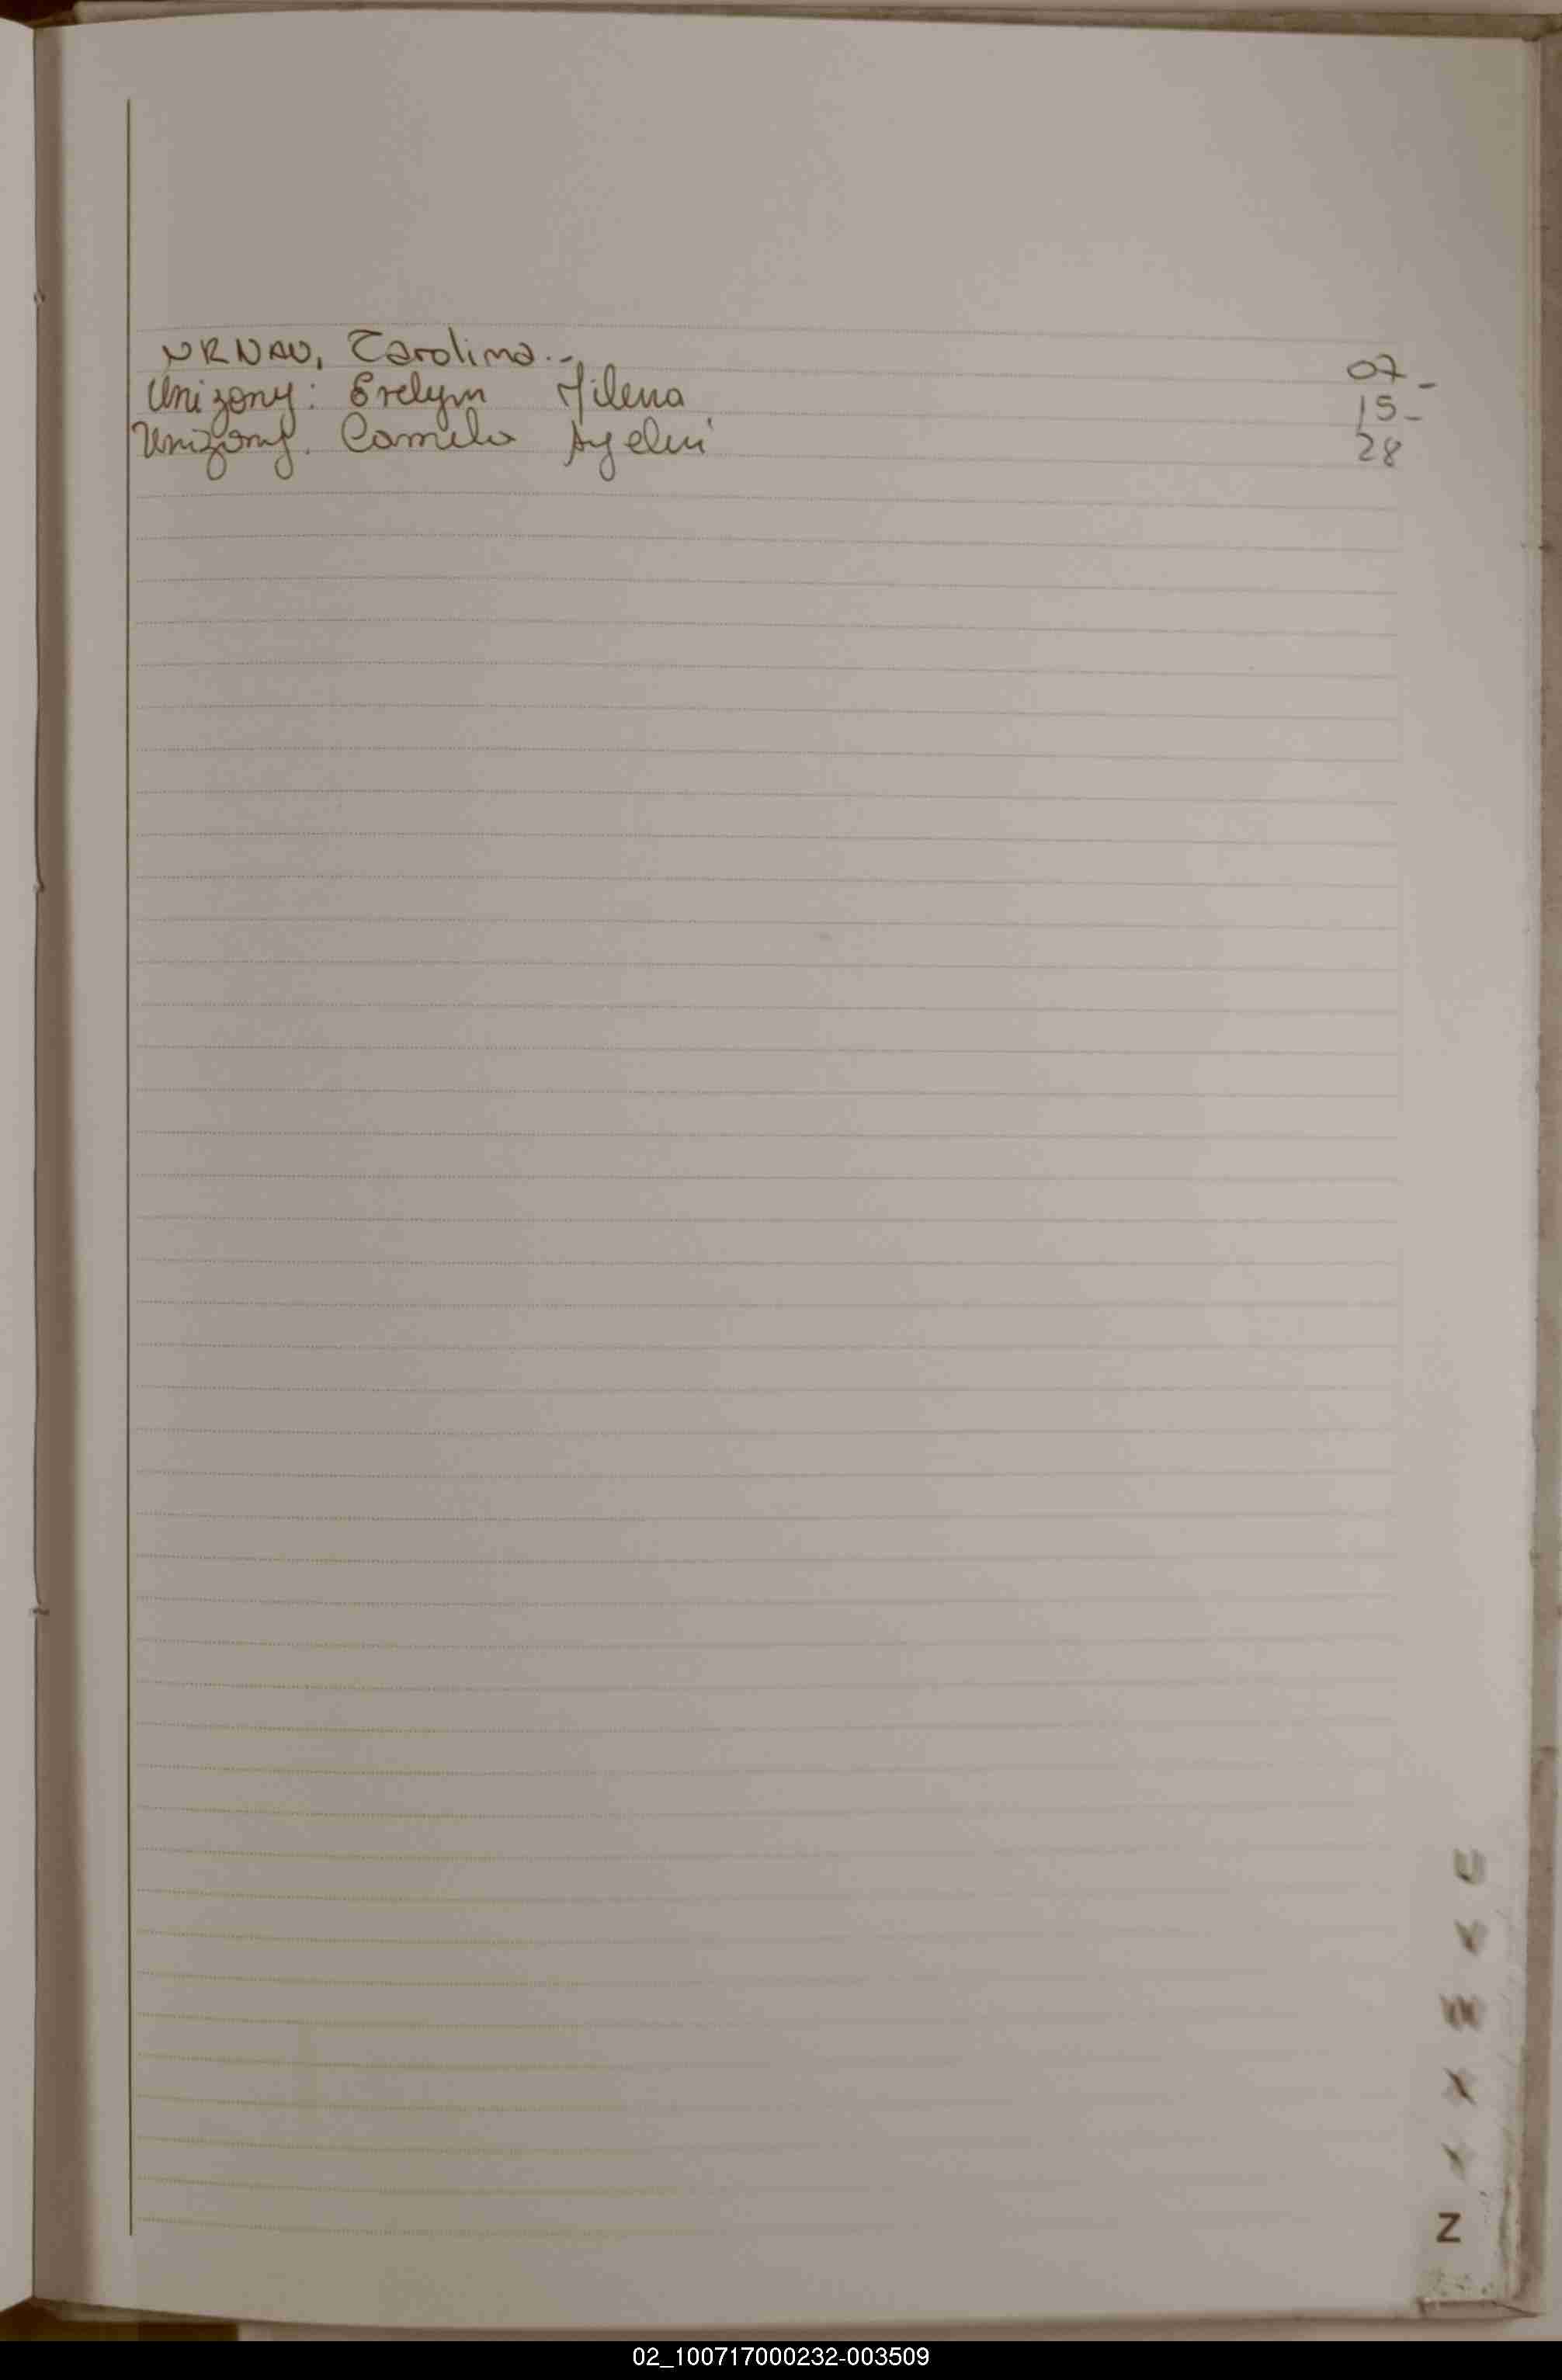 URNAU, Carolina.- 07-
Unizony: Evelyn Jilena 15-
Unizony. Camila Ayelen 28
U
V
W
X
Y
Z
02_100717000232-003509